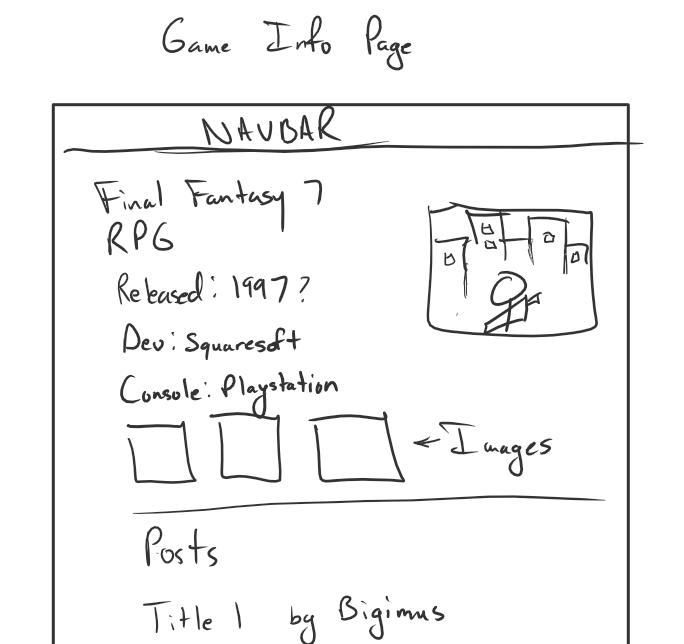 Game Info Page
NAVBAR
Final Fantasy 7
RPG
Released: 1997?
Dev: Squaresoft
Console: Playstation
← Images
Posts
Title 1 by Bigimus